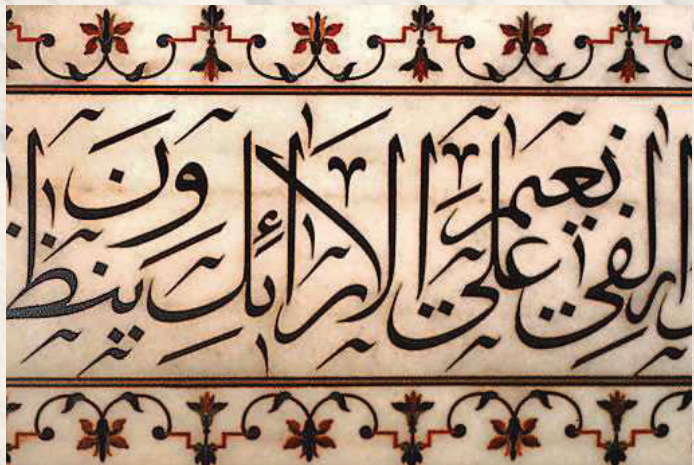 لفي نعيم على الارائك ينظرون